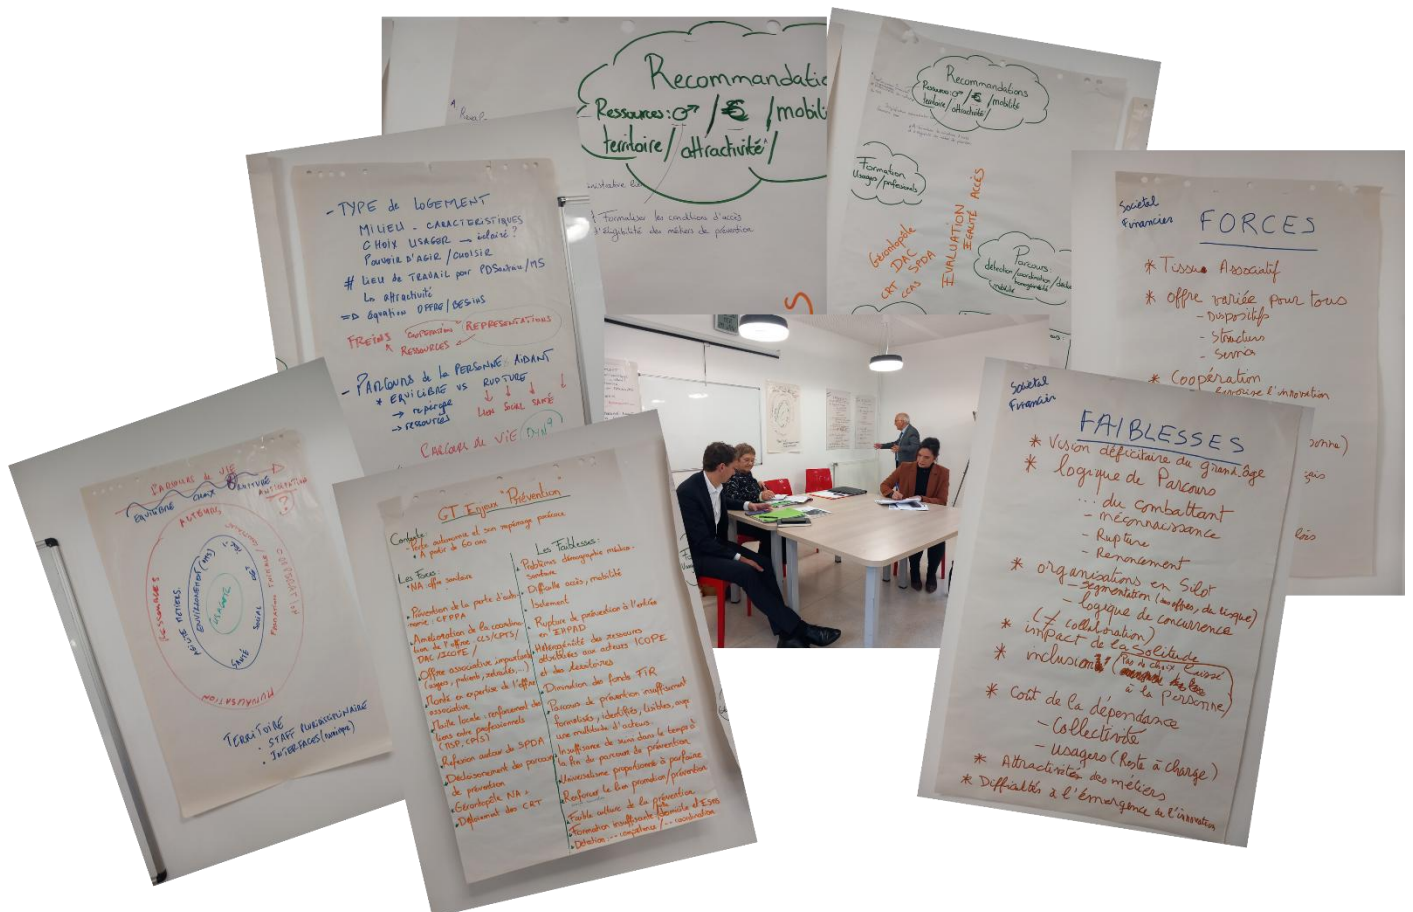 Recommandatio
Ressources: / € / mobili
territoire / attractivité /
Formaliser les conditions d'accès
d'éligibilité des métiers de prévention
Recommandations
Ressources: / € / mobilité
territoire / attractivité /
Formation
Usagers / professionnels
Gérontopôle
DAC
SPDA
CRT CCAS
EVALUATION
EGALITÉ ACCÈS
Parcours:
détection / coordination /
- TYPE de LOGEMENT
MILIEU - CARACTERISTIQUES
CHOIX USAGER → éclairé?
POUVOIR D'AGIR / CHOISIR
# LIEU de TRAVAIL pour PDSanitaire/MS
attractivité
=> équation OFFRE / BESOINS
FREINS REPRESENTATIONS
RESSOURCES
- PARCOURS de la PERSONNE - AIDANT
* EQUILIBRE VS RUPTURE
→ repérage
→ ressources
LIEN SOCIAL SANTÉ
PARCOURS DE VIE
Sociétal
Financier
FORCES
* Tissu Associatif
* offre variée pour tous
- Dispositifs
- Structures
- Services
* Coopération
l'innovation
Sociétal
Financier
FAIBLESSES
* Vision déficitaire du grand âge
* logique de Parcours
... du combattant
- méconnaissance
- Rupture
- Renoncement
* organisations en Silot
- segmentation (
- logique de concurrence
(≠ collaboration)
* impact de la Solitude
* inclusion (Pas de choix laissé
à la personne)
* Coût de la dépendance
- Collectivité
- usagers (Reste à charge)
* Attractivités des métiers
* Difficultés à l'émergence de l'innovation
PARCOURS de VIE
EQUILIBRE CHOIX RUPTURE
ANTICIPATION
ACTEURS
RESSOURCES
ENVIRONNEMENT
USAGER
SOCIAL
SANTÉ
COORDINATION
MUTUALISATION
TERRITOIRE
. STAFF PLURIDISCIPLINAIRE
. INTERFACES
GT Enjeux "Prévention"
Contexte:
- Perte autonomie et son repérage précoce
- A partir de 60 ans
Les Forces:
• NA offre sanitaire
• Prévention de la perte d'auto-
nomie: CFPPA
• Amélioration de la coordina-
tion de l'offre: CLS/CPTS/
DAC/ICOPE/
• Offre associative importante
(usagers, patients, retraités, ...)
• Montée en expertise de l'offre
associative
• Maille locale: renforcement des
liens entre professionnels
(MSP, CPTS)
• Réflexion autour de SPDA
• Décloisonnement des parcours
de prévention
• Gérontopôle NA
• Déploiement des CRT
Les Faiblesses:
• Problèmes démographie médico-
sanitaire
• Difficulté accès, mobilité
• Isolement
• Rupture de prévention à l'entrée
en EHPAD
• Hétérogénéité des ressources
attribuées aux acteurs ICOPE
et des territoires
• Diminution des fonds FIR
• Parcours de prévention insuffisamment
formalisés, identifiés, lisibles, avec
une multitude d'acteurs.
• Insuffisance de suivi dans le temps à
la fin du parcours de prévention
• Universalisme proportionné à parfaire
• Renforcer le lien promotion/prévention
• Faible culture de la prévention
• Formation insuffisante (domicile et ESMS
• Détection: -- compétence / -- coordination